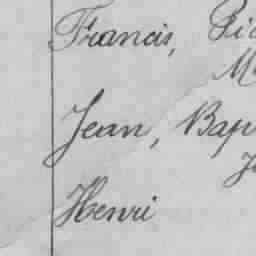 Francis,
Jean, Bap
Henri